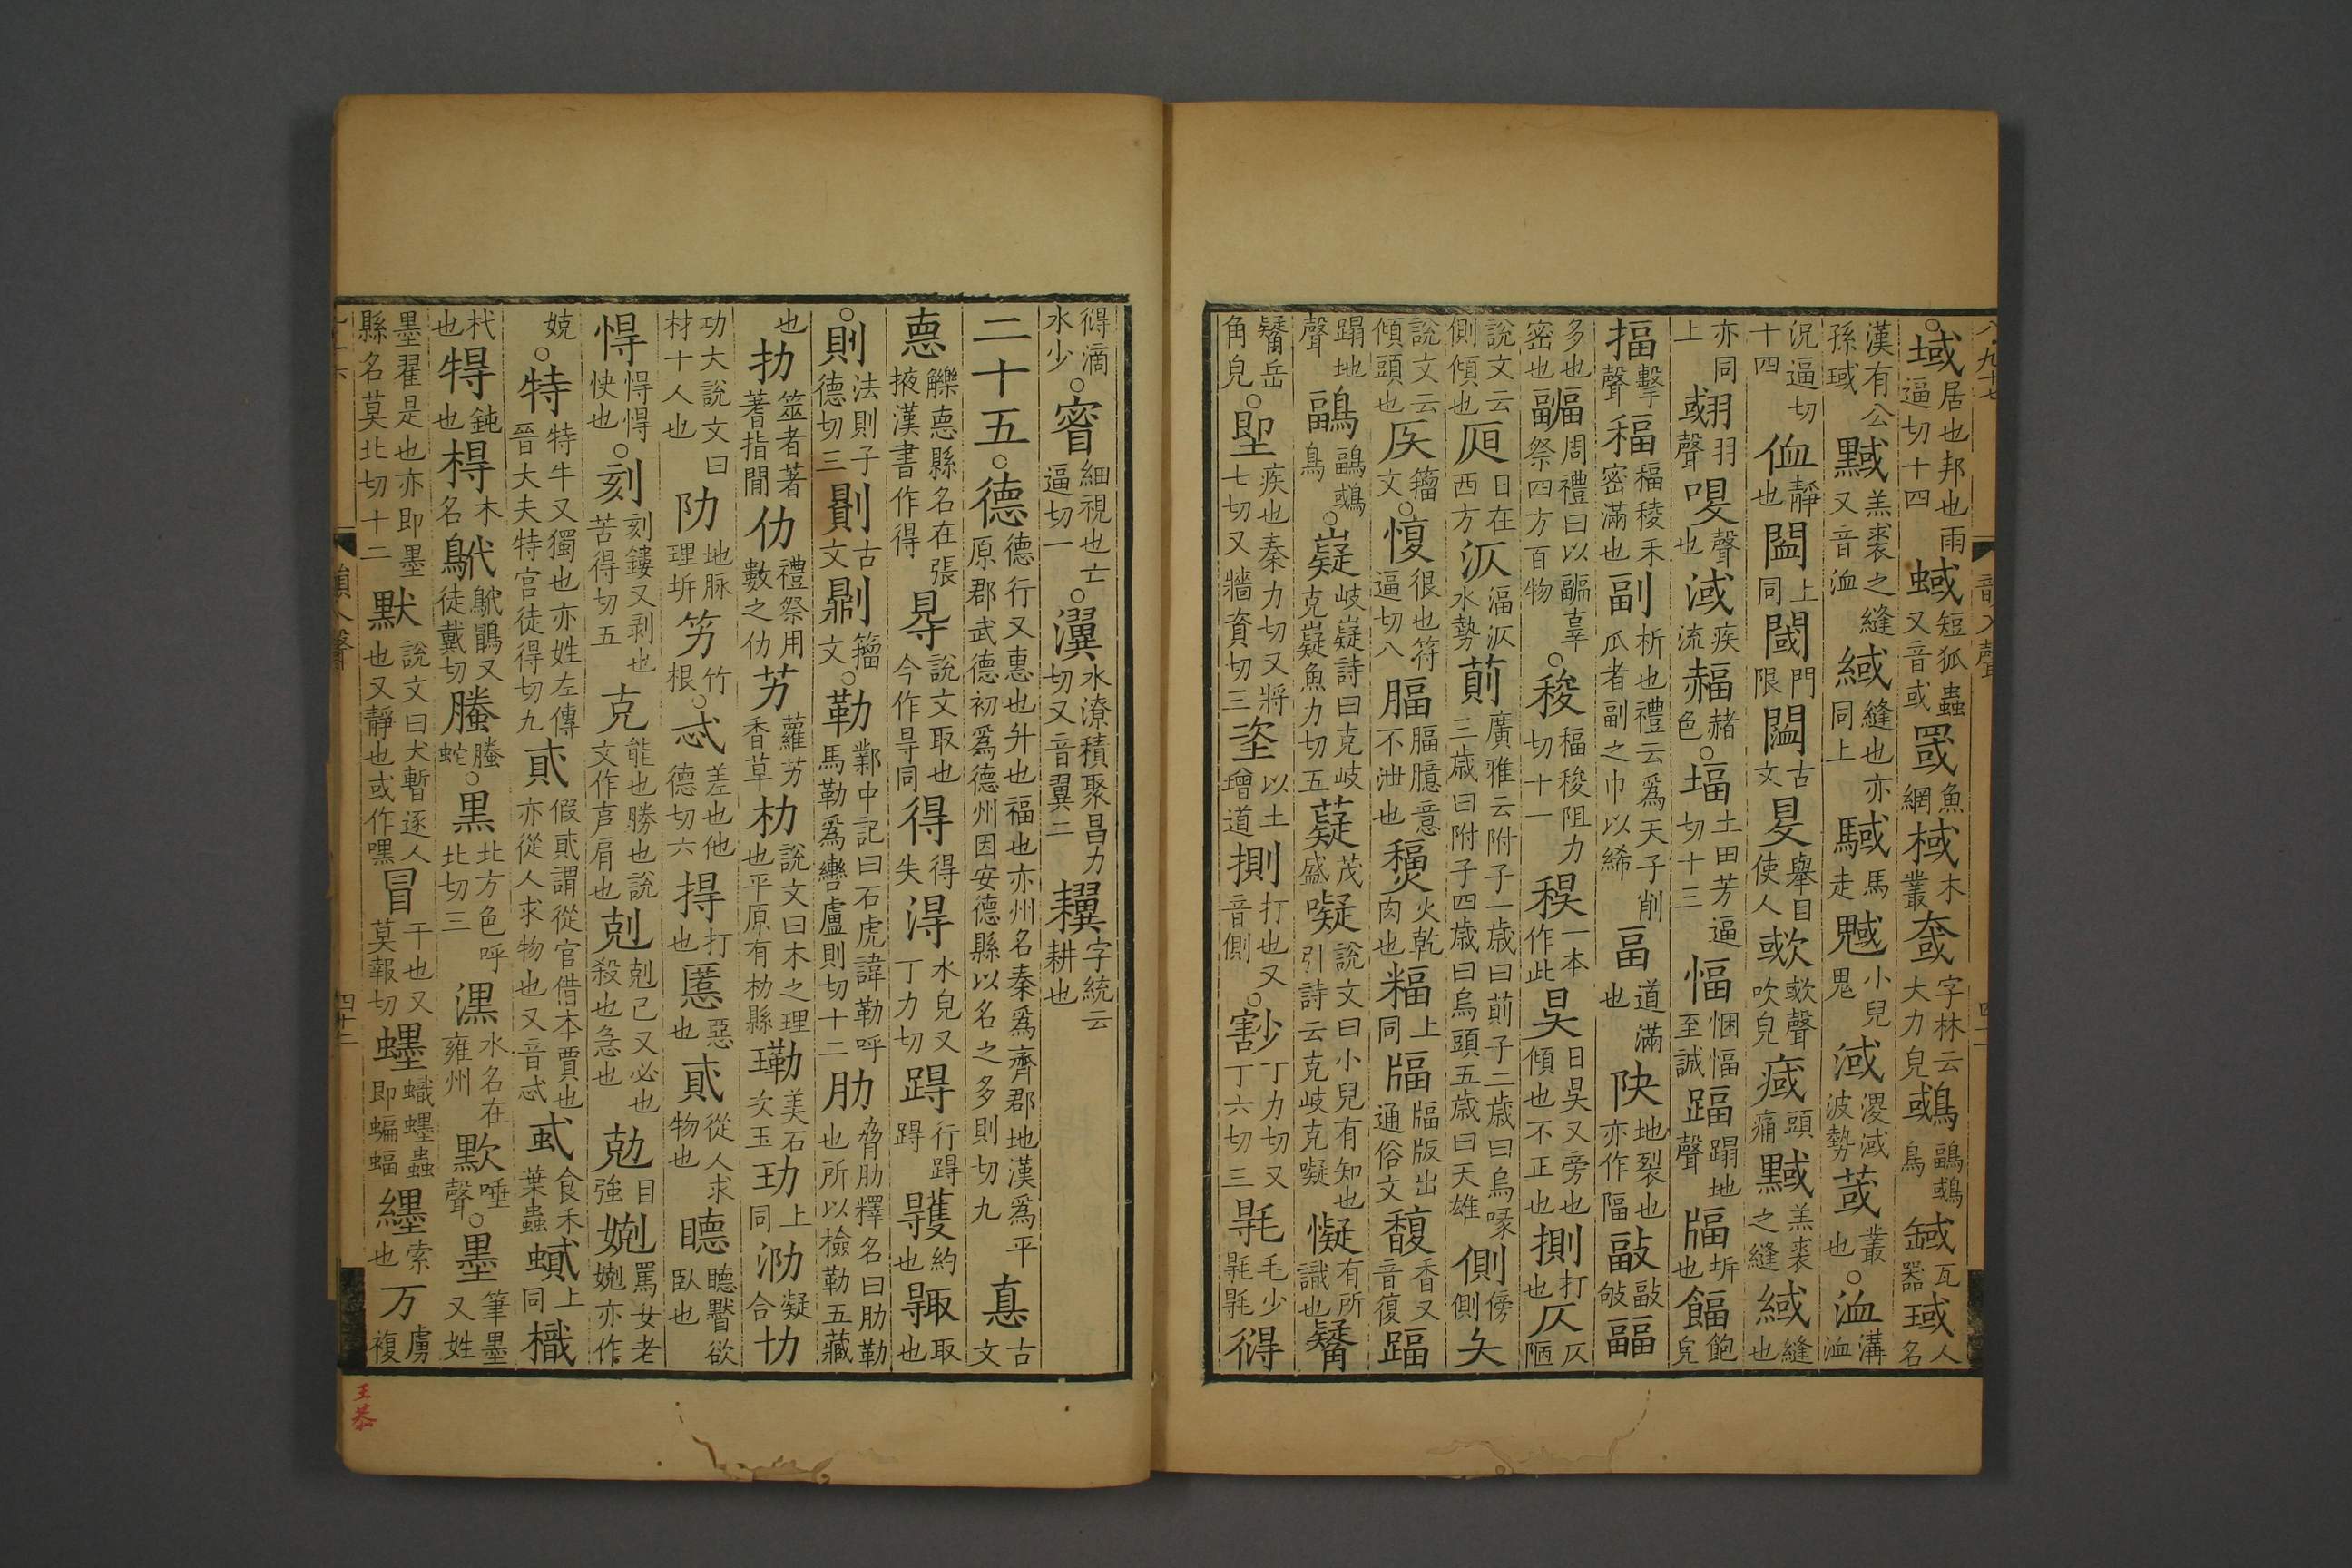 ○域居也邦也雨逼切十四蜮短狐蟲又音或罭魚網棫木叢㚜字林云大力皃䳭鶝䳭鳥𦈸瓦器琙人名
漢有公孫琙黬羔裘之縫又音洫緎縫也亦同上䮙馬走魊小兒鬼淢㵄淢波勢𦳋叢也○洫溝洫
況逼切十四侐靜也闆上同閾門限䦗古文𥄎舉目使人㰲㰲聲吹皃㽣頭痛黬羔裘之縫緎縫也
亦同上䎉羽聲㗋聲也淢疾流𧹞赭色○堛土田芳逼切十三愊悃愊至誠踾蹋地聲㽬坼也餢飽皃
揊擊聲稫稫稜禾密滿也副析也禮云爲天子削瓜者副之巾以絺畐道滿也𨸝地裂也亦作䧕𢾇𢾇皱疈
多也密也𠠦周禮曰以疈辜祭四方百物○稄稫稄阻力切十一稷一本作此昃日昃又旁也傾也不正也揤打也仄仄陋
說文云側傾也𣅔日在西方汄湢汄水勢萴廣雅云附子一歲曰萴子二歲曰烏喙三歲曰附子四歲曰烏頭五歲曰天雄側傍側夨
說文云傾頭也𠨮籀文○愎很也符逼切八腷腷臆意不泄也𥛠火乾肉也䊧上同㽬㽬版出通俗文馥香又音復踾
蹋地聲鶝鶝䳭鳥○嶷岐嶷詩曰克岐克嶷魚力切五薿茂盛㘈說文曰小兒有知也引詩云克岐克㘈懝有所識也䰯
䰯岳角皃○堲疾也秦力切又將七切又牆資切三垐以土增道揤打也又音側○𠟃丁力切又丁六切三㲁毛少㲁㲁㣮
㣮滴水少○䁵細視也亡逼切一○瀷水潦積聚昌力切又音翼二𦔜字統云耕也
二十五○德德行又惠也升也福也亦州名秦爲齊郡地漢爲平原郡武德初爲德州因安德縣以名之多則切九惪古文
㥁䚫㥁縣名在張掖漢書作得㝵說文取也今作㝵同得得失淂水皃又丁力切䙸行䙸䙸𢔶約也㝶取也
○則法則子德切三𠟻古文𠟭籀文○勒鄴中記曰石虎諱勒呼馬勒爲轡盧則切十二肋脅肋釋名曰肋勒也所以檢勒五藏
也扐筮者著蓍指閒仂禮祭用數之仂艻蘿艻香草朸說文曰木之理也平原有朸縣㔹美石次玉玏上同泐凝合㔹
功大說文曰材十人也阞地脉理坼竻竹根○忒差也他德切六㨁打也慝惡也貣從人求物也聴聴𣊬欲臥也
㥂㥂㥂怏也○刻刻鏤又剥也苦得切五克能也勝也說文作㔾肩也剋剋己又必也殺也急也勀自強㛾罵女老㛾亦作
娔○特特牛又獨也亦姓左傳晉大夫特宮徒得切九貣假貣謂從官借本賈也亦從人求物也又音忒蚮食禾葉蟲蟘上同樴
杙也㹥鈍也棏木名䲦䲦鵑又徒戴切螣螣蛇○黑北方色呼北切三潶水名在雍州㱄唾聲○墨筆墨又姓
墨翟是也亦即墨縣名莫北切十二默說文曰犬暫逐人也又靜也或作嘿冒干也又莫報切蟔蟙蟔蟲即蝙蝠纆索也万虜複
王恭